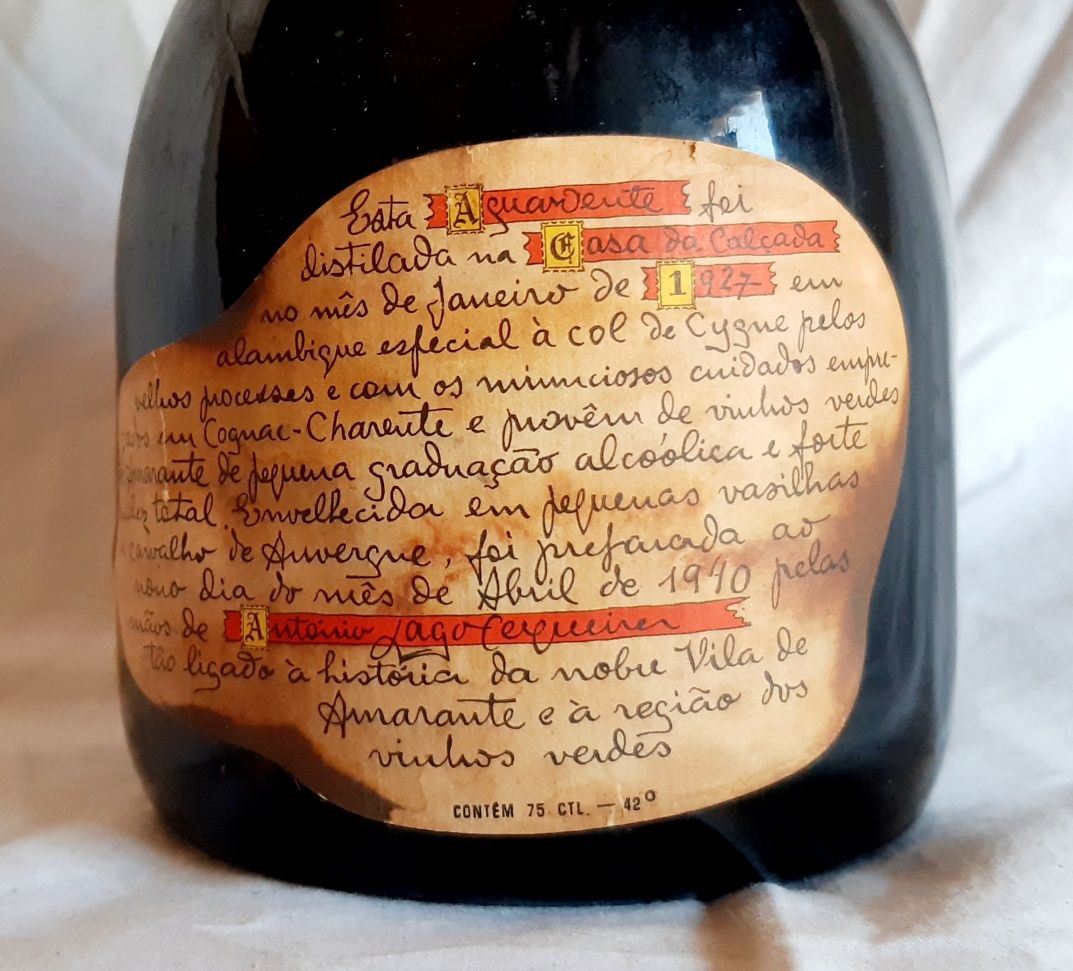 Esta Aguardente foi
distilada na Casa da Calçada
no mês de Janeiro de 1927 em
alambique especial à col de Cygne pelos
velhos processos e com os minuciosos cuidados empre-
gados em Cognac-Charente e provêm de vinhos verdes
de Amarante de pequena graduação alcoólica e forte
total. Envelhecida em pequenas vasilhas
carvalho de Auvergne, foi preparada ao
nono dia do mês de Abril de 1940 pelas
mãos de António Lago Cerqueira
tão ligado à história da nobre Vila de
Amarante e à região dos
vinhos verdes
CONTÉM 75 CTL. — 42º